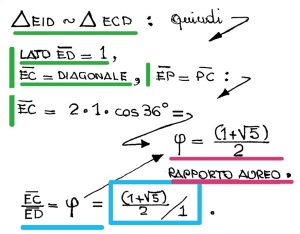 △EID ~ △ECD : quindi
LATO E̅D̅ = 1,
E̅C̅ = DIAGONALE, E̅P̅ = P̅C̅ :
E̅C̅ = 2·1·cos 36° =
φ = (1+√5)/2
RAPPORTO AUREO.
E̅C̅/E̅D̅ = φ = (1+√5)/2 / 1 .